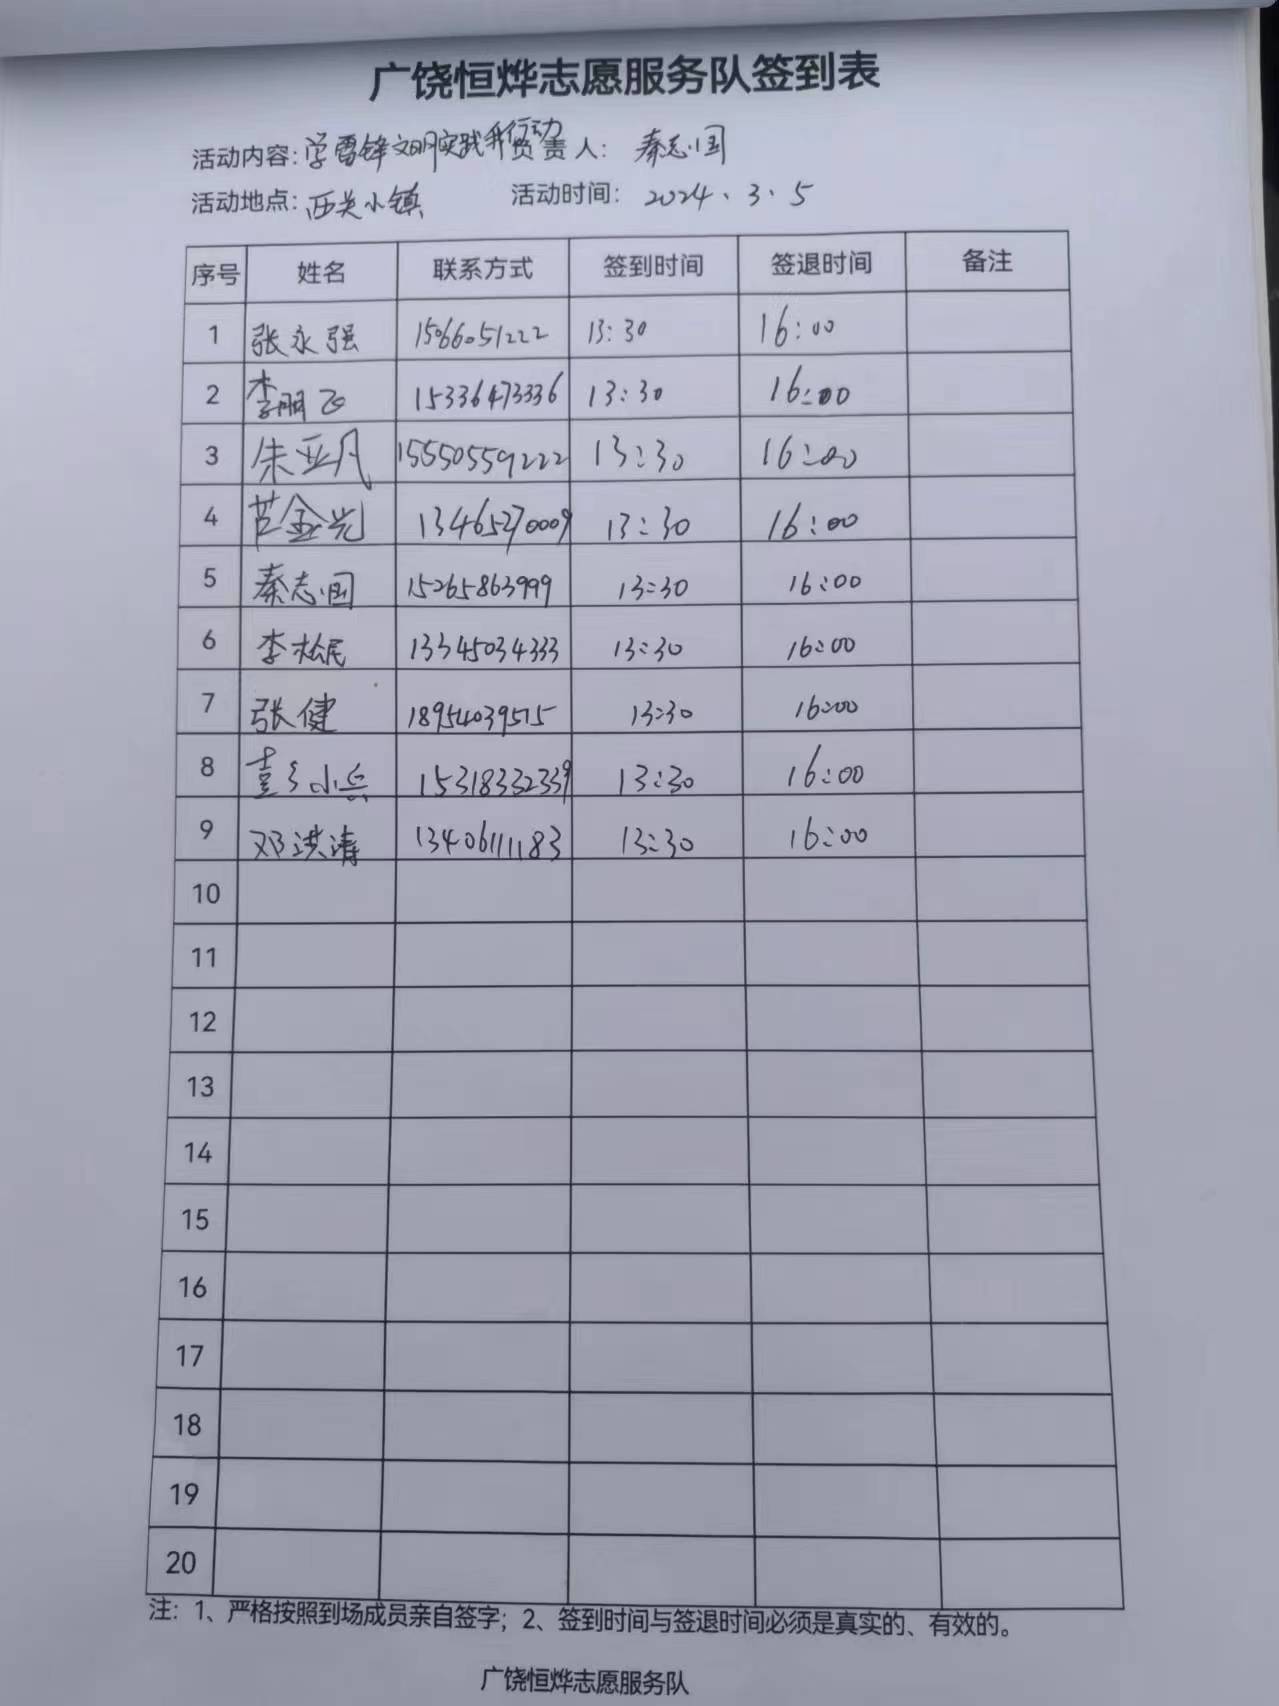 广饶恒烨志愿服务队签到表
活动内容：学雷锋文明实践我行动 负责人：秦志国
活动地点：西关小镇 活动时间：2024、3、5
序号 姓名 联系方式 签到时间 签退时间 备注
1 张永强 15066051222 13:30 16:00
2 李鹏飞 15336473336 13:30 16:00
3 朱亚凡 15550559222 13:30 16:00
4 金光 13465270009 13:30 16:00
5 秦志国 15265863999 13:30 16:00
6 李松民 13345034333 13:30 16:00
7 张健 18954039515 13:30 16:00
8 小兵 15318332339 13:30 16:00
9 邓洪涛 13406111183 13:30 16:00
10
11
12
13
14
15
16
17
18
19
20
注：1、严格按照到场成员亲自签字；2、签到时间与签退时间必须是真实的、有效的。
广饶恒烨志愿服务队